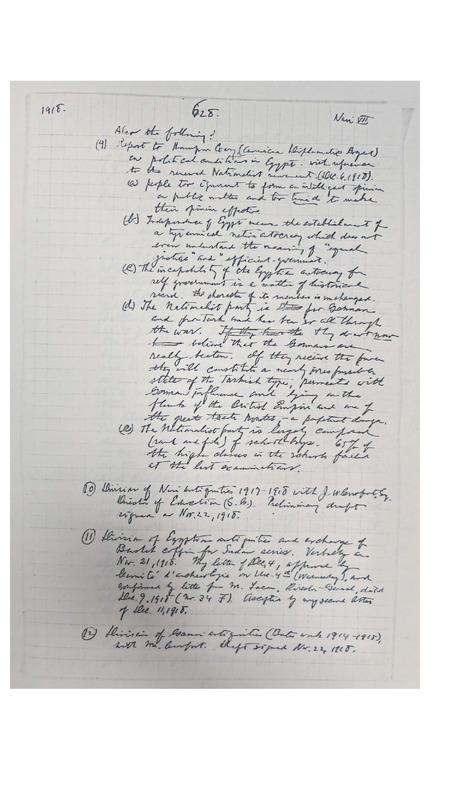 1918.
628.
Nuri VII
Also the following:
(9) Report to Hampson Gary (American Diplomatic Agent)
on political conditions in Egypt - with reference
to the renewed Nationalist movement (Dec. 6, 1918).
(a) people too ignorant to form an intelligent opinion
on public matters and too timid to make
their opinion effective
(b) Independence of Egypt means the establishment of
a tyrannical autocracy which does not
even understand the meaning of "equal
justice" and "efficient government.
(c) The incapability of the Egyptian autocracy for
self government is a matter of historical
record. The character of its members is unchanged.
(d) The Nationalist party is for German
and pro-Turk and has been so all through
the war. they do not now
believe that the Germans are
really beaten. If they receive the power
they will constitute a nearly irresponsible
state of the Turkish type, permeated with
German influence and lying on the
flank of the British Empire and one of
the great trade routes, - a perpetual danger.
(e) The Nationalist party is largely composed
(rank and file) of school-boys. 65% of
the higher classes in the schools failed
at the last examinations.
(10) Division of Nuri antiquities 1917-1918 with J. W. Crowfoot Esq.
Director of Education (S.G.). Preliminary draft
signed on Nov. 22, 1918.
(11) Division of Egyptian antiquities and exchange of
Bersheh coffin for Sudan series. Verbally on
Nov. 21, 1918. My letter of Dec. 4, approved by
Comité d'archeologie on Dec. 4th (Wednesday), and
confirmed by letter from M. Lacau, Director-General, dated
Dec. 9, 1918 (Nr. 34 F). Accepted by my second letter
of Dec. 11, 1918.
(12) Division of Gammai antiquities (Bates work 1914-1915),
with Mr. Crowfoot. Draft signed Nov. 22, 1918.